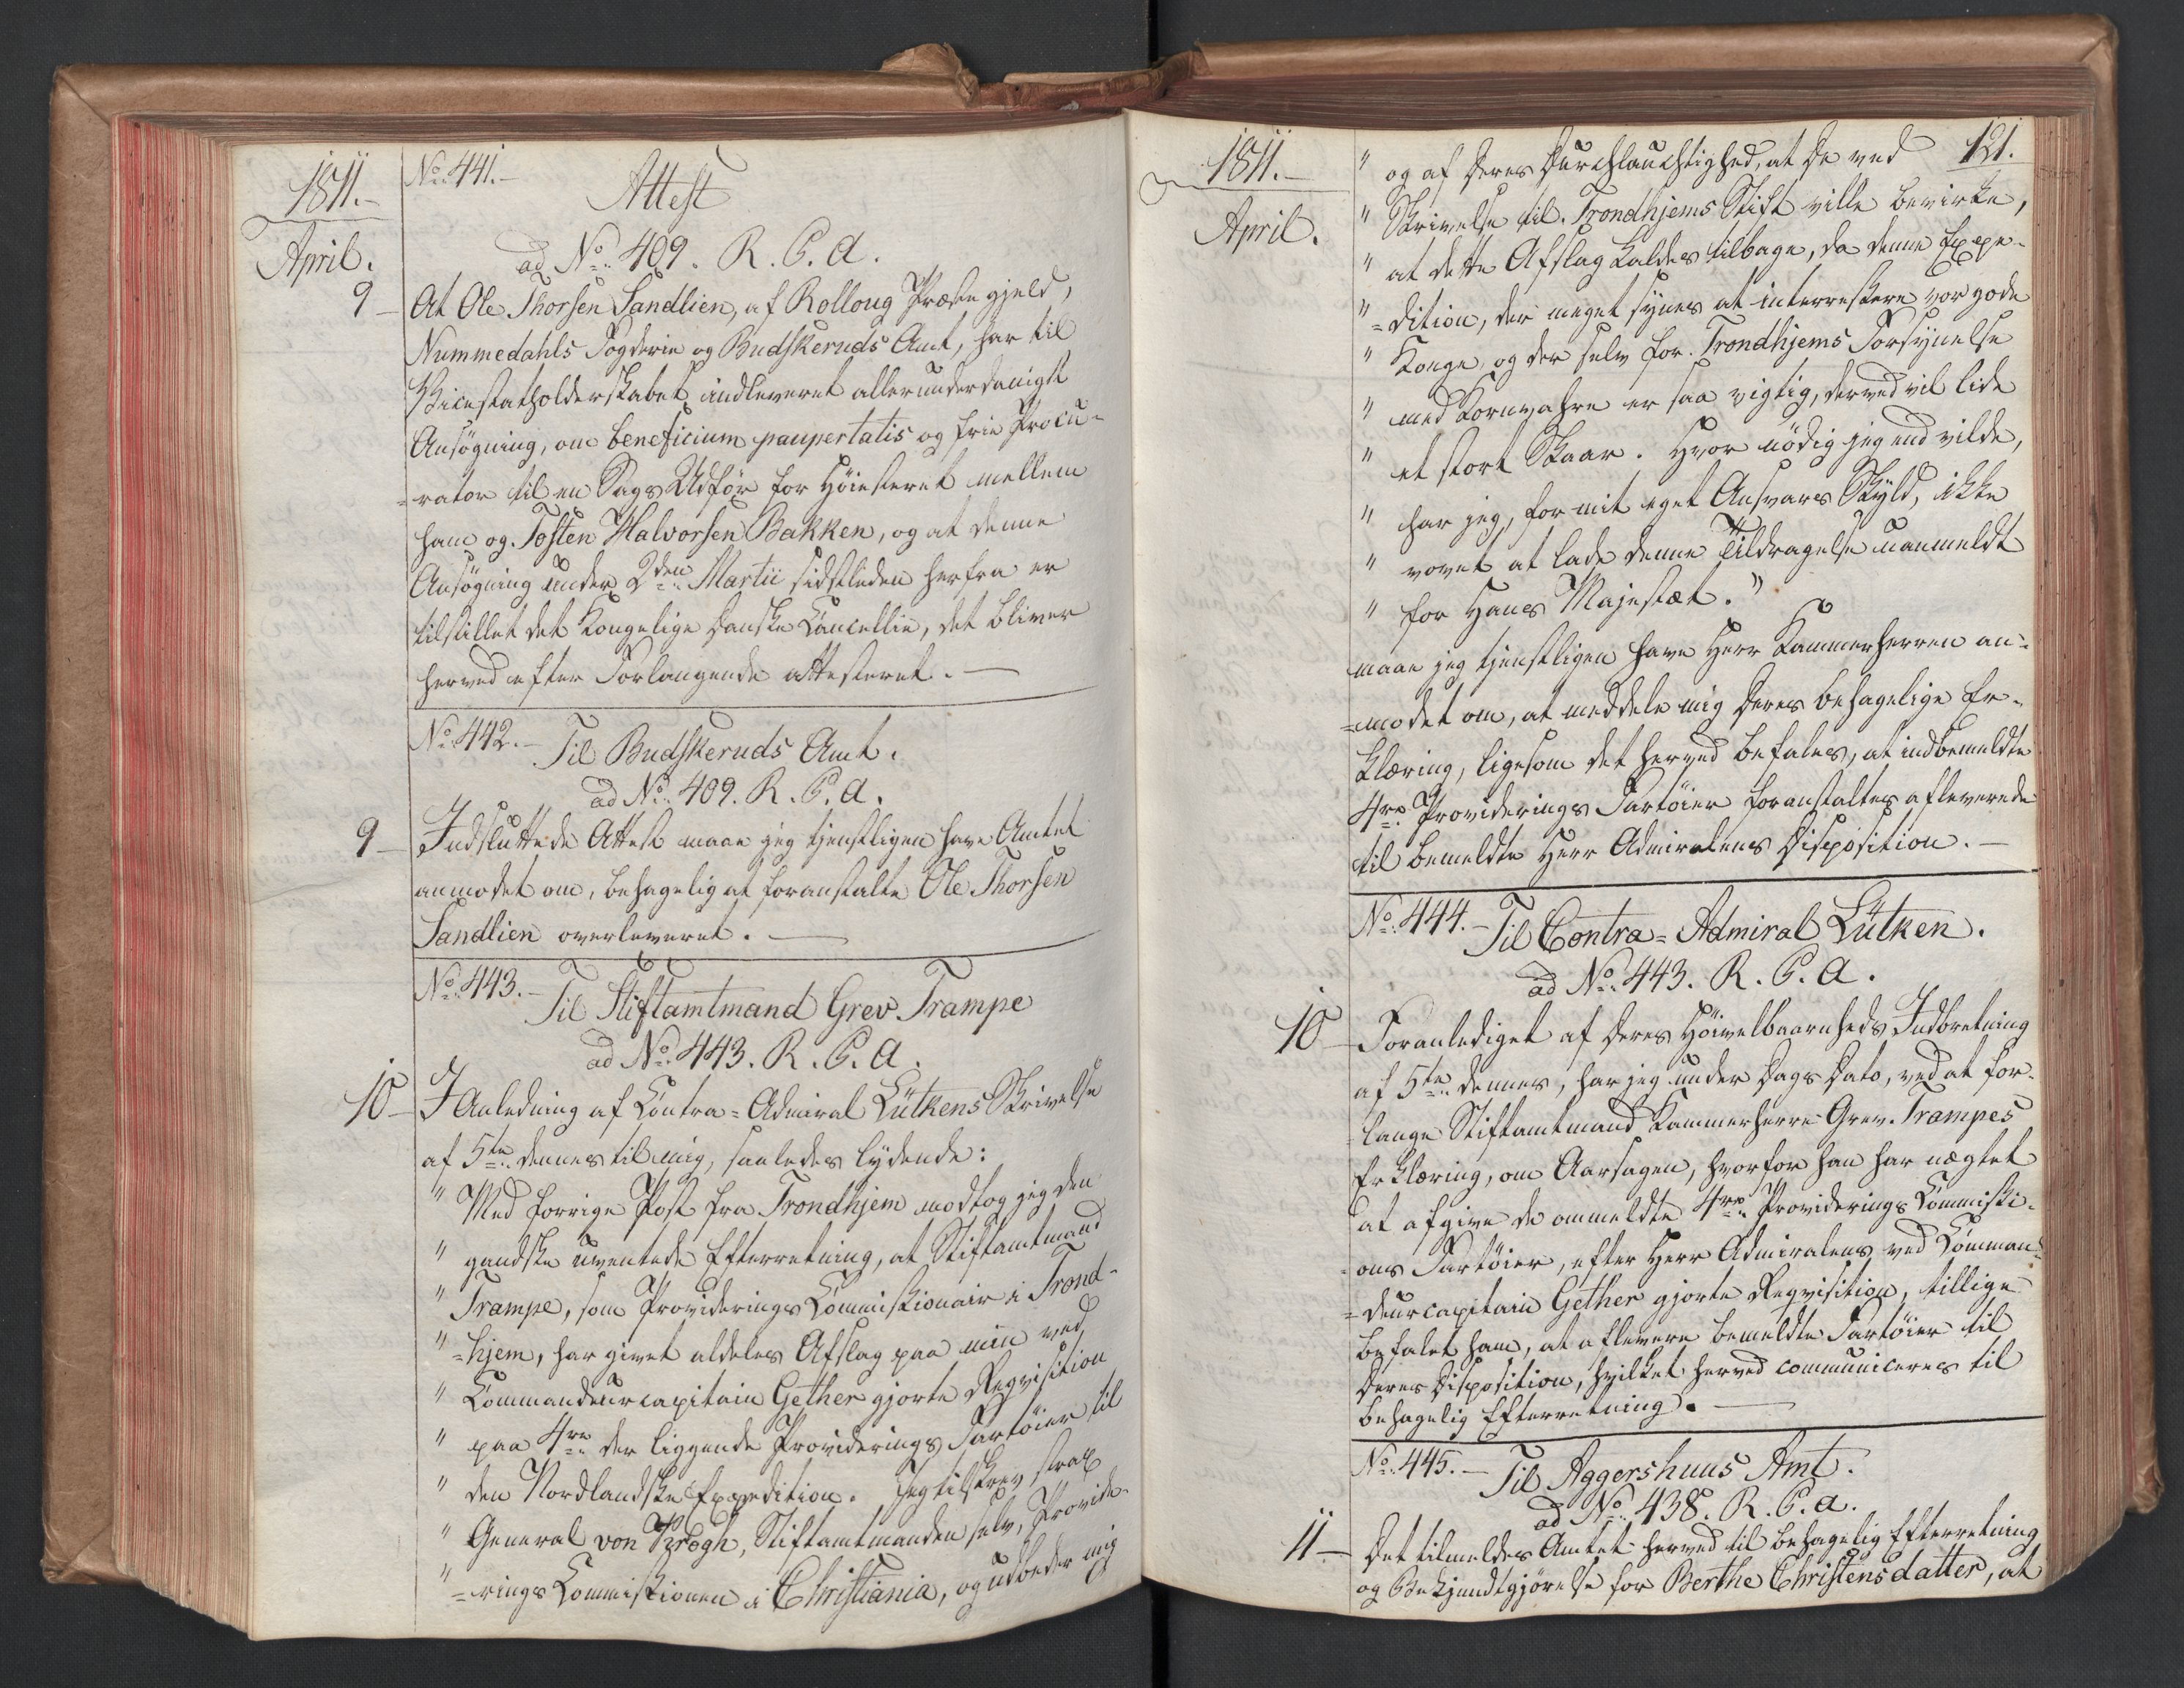 1811.
April.
No: 441.
Attest
ad No: 409. R. C. A.
9 At Ole Thorsen Sandlien, af Rolloug Præstegjeld,
Nummedahls Fogderie og Budskeruds Amt, har til
Vicestatholderskabet indleveret allerunderdanigst
Ansøgning, om beneficium paupertatis og frie Procu-
=rator til en Sags Udføx for Høiesteret mellem
ham og Tosten Halvorsen Bakken, og at denne
Ansøgning under 2den Martii sidstleden herfra er
tilstillet det Kongelige Danske Cancellie, det bliver
herved efter Forlangende attesteret.
No: 442. Til Budskeruds Amt.
ad No: 409. R. C. A.
9 Indsluttede Attest maae jeg tjenstligen have Amtet
anmodet om, behagelig at foranstalte Ole Thorsen
Sandlien overleveret.
No: 443. Til Stiftamtmand Grev Trampe
ad No: 443. R. C. A.
10 I Anledning af Contra=Admiral Lütkens Skrivelse
af 5te dennes til mig, saaledes lydende:
" Med forrige Post fra Trondhjem modtog jeg den
" gandske uventede Efterretning, at Stiftamtmand
" Trampe, som Providerings Commissionair i Trond-
" =hjem, har givet aldeles Afslag paa min ved
" Commandeurcapitain Gether gjorte Reqvisition
" paa 4re der liggende Providerings Fartøier til
" den Nordlandske Expedition. Jeg tilskrev strax
" General von Krogh, Stiftamtmanden selv, Provide-
" =rings Commissionen i Christiania, og udbeder mig
1811.
April.
121.
" og af Deres Durchlauchtighed, at De ved
" Skrivelse til Trondhjems Stift ville bevirke,
" at dette Afslag kaldes tilbage, da denne Expe-
" =dition, der meget synes at interressere vor gode
" Konge, og der selv for Trondhjems Forsynelse
" med Kornvahre er saa vigtig, derved vil lide
" et stort Skaar. Hvor nødig jeg end vilde,
" har jeg, for mit eget Ansvars Skyld, ikke
" vovet at lade denne Tildragelse uanmeldt
" for Hans Majestæt."
maae jeg tjenstligen have Herr Kammerherren an-
=modet om, at meddele mig Deres behagelige Er-
klæring, ligesom det herved befales, at indbemeldte
4re Providerings Fartøier foranstaltes afleverede
til bemeldte Herr Admiralens Disposition.
No: 444. Til Contra=Admiral Lütken.
ad No: 443. R. C. A.
10 Foranlediget af Deres Høivelbaarnheds Indbretning
af 5te dennes, har jeg under Dags Dato, ved at for-
=lange Stiftamtmand Kammerherre Grev Trampes
Erklæring, om Aarsagen, hvorfor han har nægtet
at afgive de ommeldte 4re Providerings Commissi-
=ons Fartøier, efter Herr Admiralens ved Comman-
=deurcapitain Gether gjorte Reqvisition, tillige
befalet ham, at aflevere bemeldte Fartøier til
Deres Disposition, hvilket herved communiceres til
behagelig Efterretning.
No: 445. Til Aggershuus Amt.
ad No: 438. R. C. A.
11 Det tilmeldes Amtet herved til behagelig Efterretning
og Bekjendtgjørelse for Berthe Christensdatter, at